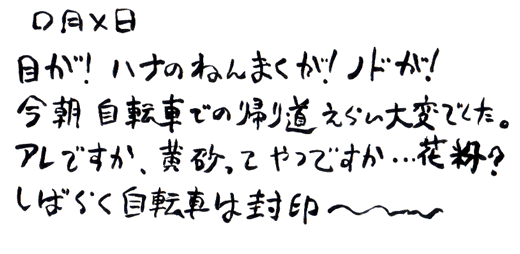 〇月×日
目が!ハナのねんまくが!ノドが!
今朝自転車での帰り道えらい大変でした。
アレですか、黄砂ってやつですか…花粉?
しばらく自転車は封印〜〜〜